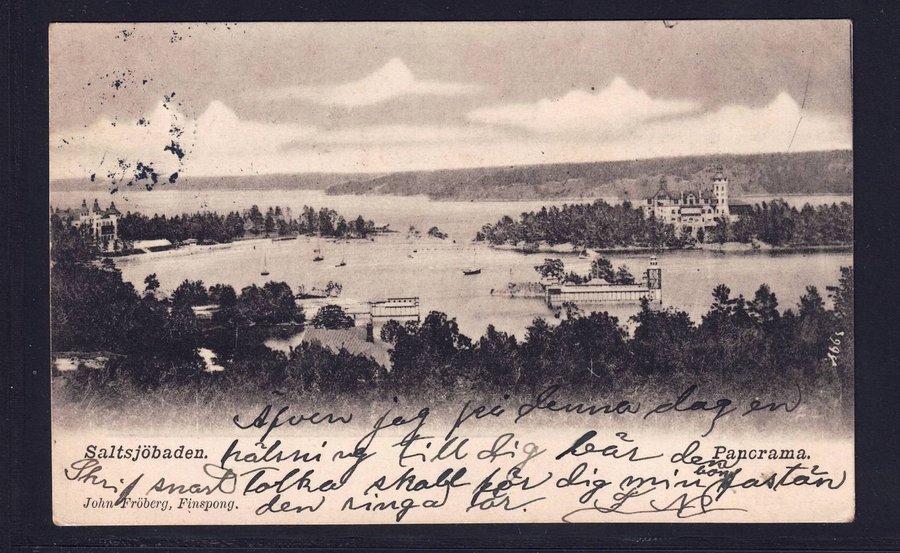 1663
Äfven jag på denna dag en
Saltsjöbaden. hälsning till dig bär de Panorama.
Skrif snart Tolka skall för dig min fastän
John Fröberg, Finspong. den ringa är.